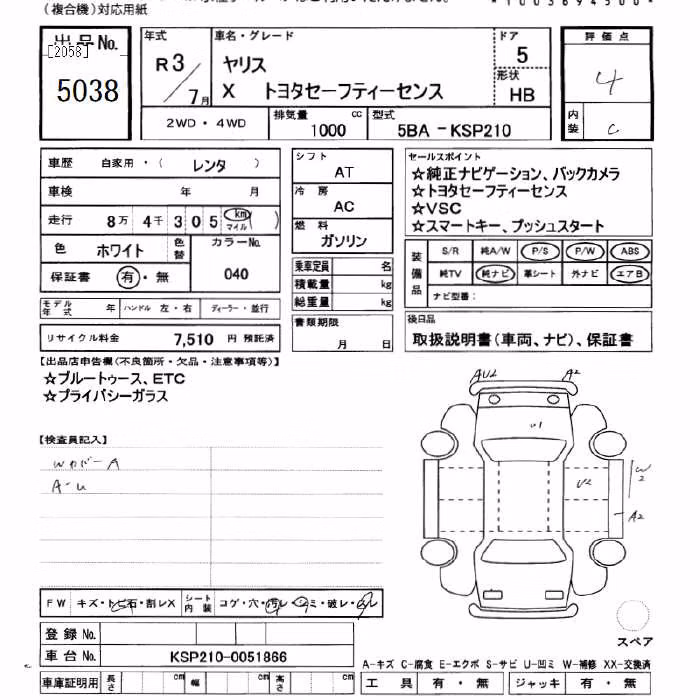 (複合機)対応用紙
*1003694500*
出品No.
[2058]
5038
年式
R3/7月
車名・グレード
ヤリス
X トヨタセーフティーセンス
ドア
5
形状
HB
評価点
4
内装
C
2WD・4WD
排気量
1000 cc
型式
5BA-KSP210
車歴 自家用・( レンタ )
車検 年 月
走行 8万 4千 3 0 5 (km マイル)
色 ホワイト 色替
カラーNo.
040
保証書 有・無
モデル年式 年 ハンドル 左・右 ディーラー・並行
リサイクル料金 7,510 円 預託済
シフト
AT
冷房
AC
燃料
ガソリン
乗車定員 名
積載量 kg
総重量 kg
書類期限
月 日
セールスポイント
☆純正ナビゲーション、バックカメラ
☆トヨタセーフティーセンス
☆VSC
☆スマートキー、プッシュスタート
装備品
S/R 純A/W P/S P/W ABS
純TV 純ナビ 革シート 外ナビ エアB
ナビ型番:
後日品
取扱説明書(車両、ナビ)、保証書
【出品店申告欄(不良箇所・欠品・注意事項等)】
☆ブルートゥース、ETC
☆プライバシーガラス
【検査員記入】
Wカバー A
A-U
AU2 A2
U1
U2
W2
A2
FW キズ・トビ石・割レX
シート内装 コゲ・穴・汚レ・シミ・破レ・スレ
登録No.
車台No. KSP210-0051866
車庫証明用 長さ cm 幅 cm 高さ cm
スペア
A-キズ C-腐食 E-エクボ S-サビ U-凹ミ W-補修 XX-交換済
工具 有・無 ジャッキ 有・無